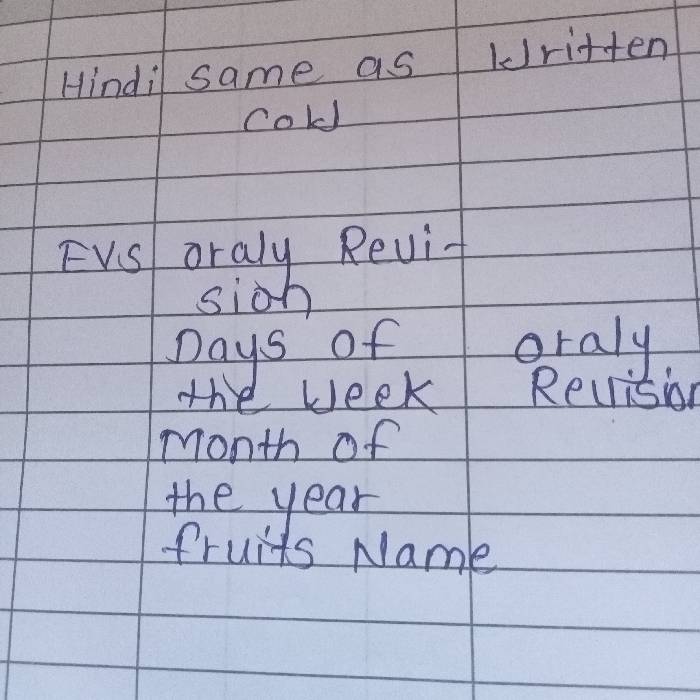 Hindi same as Written
Cow
EVS oraly Revi-
sion
Days of oraly
the Week Revision
Month of
the year
fruits Name